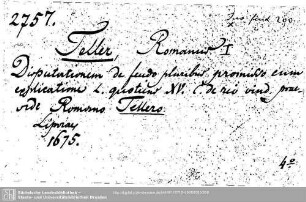 2757.
Teller, Romanus I
Disputationem de feudo pluribus promisso cum
explicatione L. quotiens XV. C. de rei vind. prae-
side Romano Tellero.
Lipsiae
1675.
4o
Sächsische Landesbibliothek -
Staats- und Universitätsbibliothek Dresden